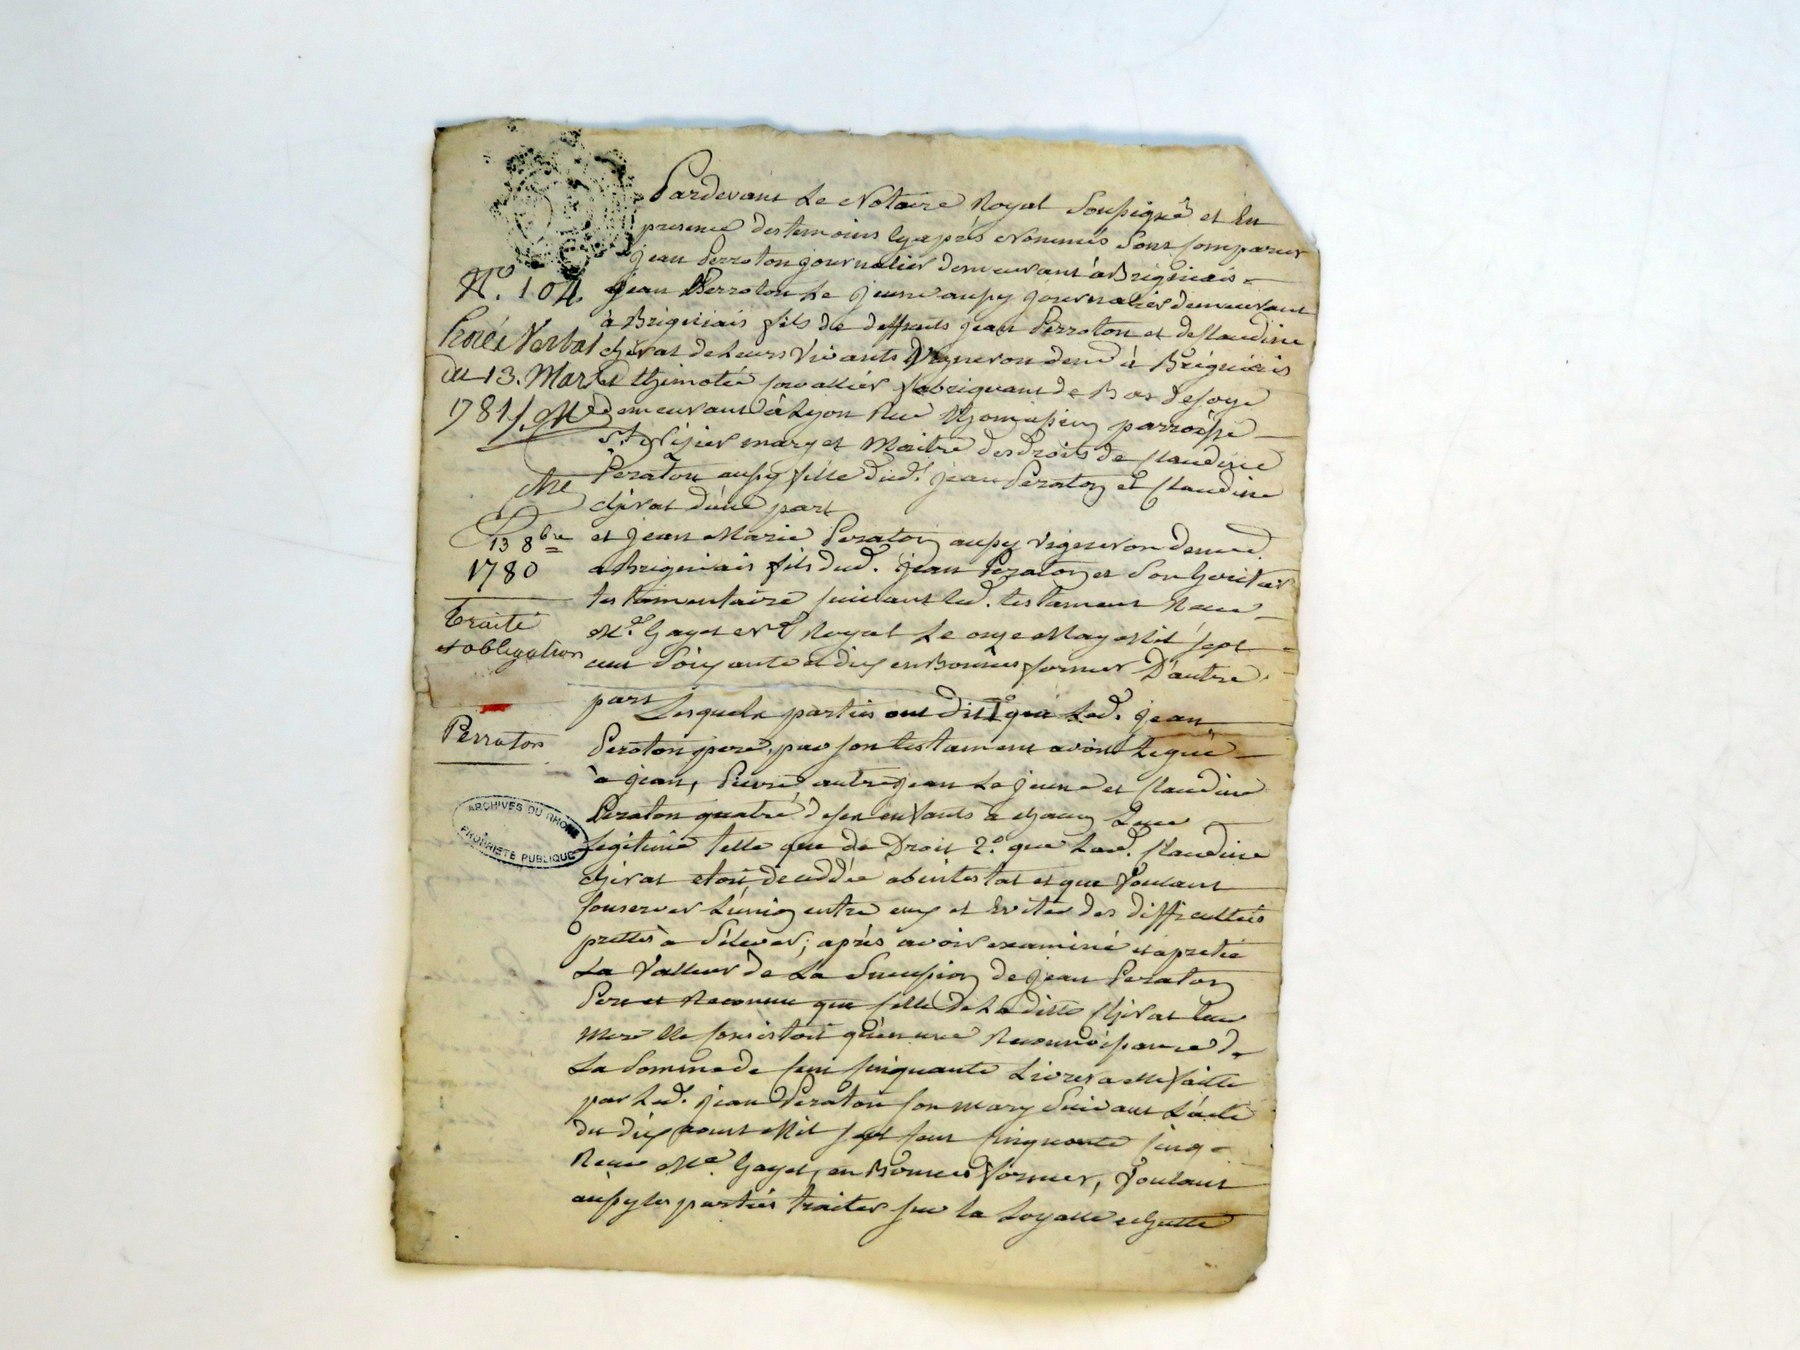 Pardevant Le Notaire Royal Soussigné et En
presence des temoins Cyaprés Nommés Sont Comparus
jean Perraton journalier demeurant à Brigniais
jean Perraton Le jeune aussy journalier demeurant
à Brigniais fils de deffunts jean Perraton et de Claudine
Chirat de Leurs Vivants Vigneron demt à Brigniais
et thimotée Cavallier fabriquant de Bas de soye
demeurant à Lyon Rue parroisse
St Nizier mary et Maitre des Droits de Claudine
Peraton aussy fille dud. jean Peraton et Claudine
Chirat d'une part
et jean Marie Peraton aussy vigneron demt
a Brigniais fils dud. jean Peraton et Son heritier
testamentaire suivant led. testament Receu
Me. Gayet Nre Royal Le onze May Mil sept
cent Soixante et dix en Bonnes formes D'autre
part
Lesquels parties ont dit 1o que Led. jean
Peraton pere, par son testament avoit Legué
à jean, Pierre, autre jean Le jeune et Claudine
Peraton quatre de ses enfants à chacun Leur
Legitime telle que de Droit 2o. que Lad. Claudine
Chirat etoit deceddée abintestat et que Voulant
Conserver L'union entre eux et Eviter des difficultés
prettes à S'élever; aprés avoir examiné et apretié
La Valleur de La Sucession de jean Peraton
Pere et Reconnu que celle de La ditte Chirat Leur
Mere Ne Consistoit qu'en une Reconnoissance de
La Somme de Cent Cinquante Livres a elle faitte
par Led. jean Peraton son mary Suivant L'acte
du dix aoust Mil sept Cent Cinquante Cinq
Receu Me. Gayet, en Bonnes formes, Voulant
aussy les parties traiter sur la Loyalle echutte
No. 104
Procés Verbal
du 13. Mars
1781
13 8bre
1780
Traité
et obligation
Perraton
ARCHIVES DU RHÔNE
PROPRIÉTÉ PUBLIQUE